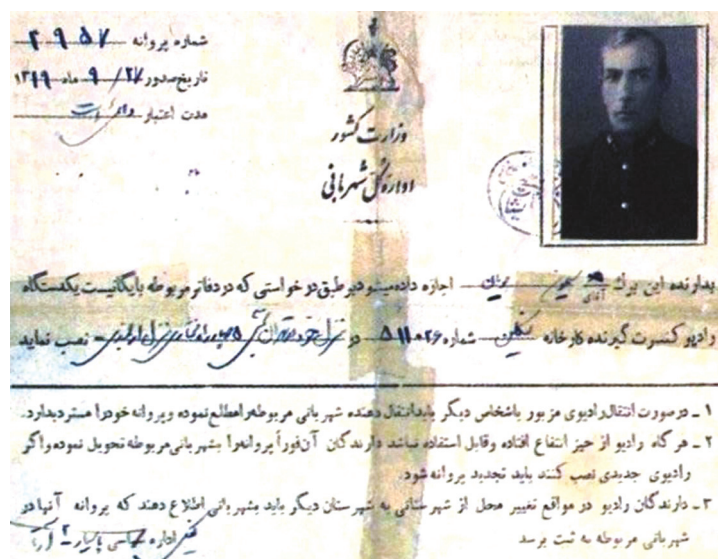 شماره پروانه ۲۹۵۷
تاریخ صدور ۲۷/ ۹ ماه ۱۳۱۹
مدت اعتبار
وزارت کشور
اداره کل شهربانی
بدارنده این برک آقای اجازه داده میشود بر طبق درخواستی که در دفاتر مربوطه بایگانیست یکدستگاه
رادیو کنسرت گیرنده کارخانه شماره ۵۱۱۰۲۶ در نصب نماید
۱ - در صورت انتقال رادیوی مزبور باشخاص دیگر باید انتقال دهنده شهربانی مربوطه را مطلع نموده و پروانه خود را مسترد بدارد.
۲ - هر گاه رادیو از حیز انتفاع افتاده و قابل استفاده نباشد دارندگان آن فوراً پروانه را بشهربانی مربوطه تحویل نموده و اگر
رادیوی جدیدی نصب کنند باید تجدید پروانه شود.
۳ - دارندگان رادیو در مواقع تغییر محل از شهرستانی به شهرستان دیگر باید بشهربانی اطلاع دهند که پروانه آنها در
شهربانی مربوطه به ثبت برسد
اداره سیاسی